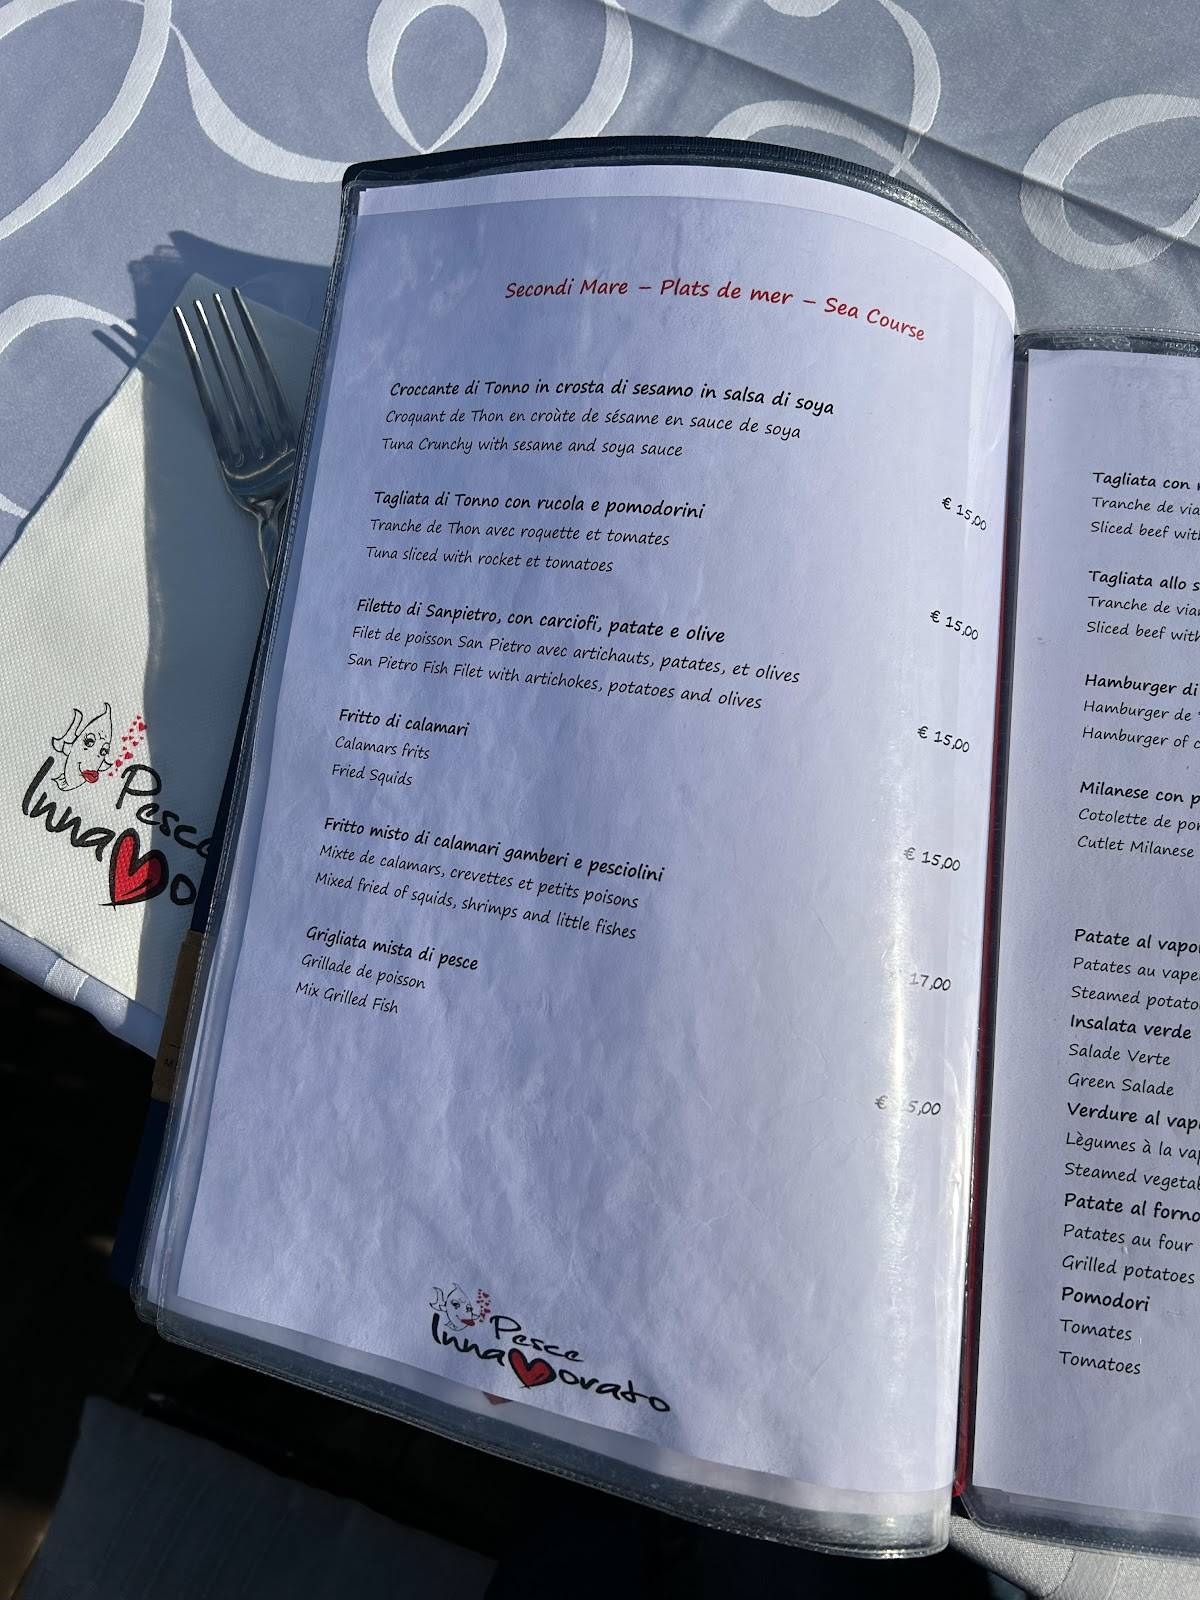 Secondi Mare – Plats de mer – Sea Course
Croccante di Tonno in crosta di sesamo in salsa di soya
Croquant de Thon en croùte de sésame en sauce de soya
Tuna Crunchy with sesame and soya sauce
€ 15,00
Tagliata di Tonno con rucola e pomodorini
Tranche de Thon avec roquette et tomates
Tuna sliced with rocket et tomatoes
€ 15,00
Filetto di Sanpietro, con carciofi, patate e olive
Filet de poisson San Pietro avec artichauts, patates, et olives
San Pietro Fish Filet with artichokes, potatoes and olives
€ 15,00
Fritto di calamari
Calamars frits
Fried Squids
€ 15,00
Fritto misto di calamari gamberi e pesciolini
Mixte de calamars, crevettes et petits poisons
Mixed fried of squids, shrimps and little fishes
17,00
Grigliata mista di pesce
Grillade de poisson
Mix Grilled Fish
€ 5,00
Pesce
Innamorato
Tagliata con
Tranche de
Sliced beef
Tagliata allo
Tranche de
Sliced beef
Hamburger di
Hamburger de
Hamburger of
Milanese con
Cotolette de
Cutlet Milanese
Patate al
Patates au
Steamed
Insalata verde
Salade Verte
Green Salade
Verdure al
Lègumes à la
Steamed
Patate al forno
Patates au four
Grilled potatoes
Pomodori
Tomates
Tomatoes
Pesce
Innamo